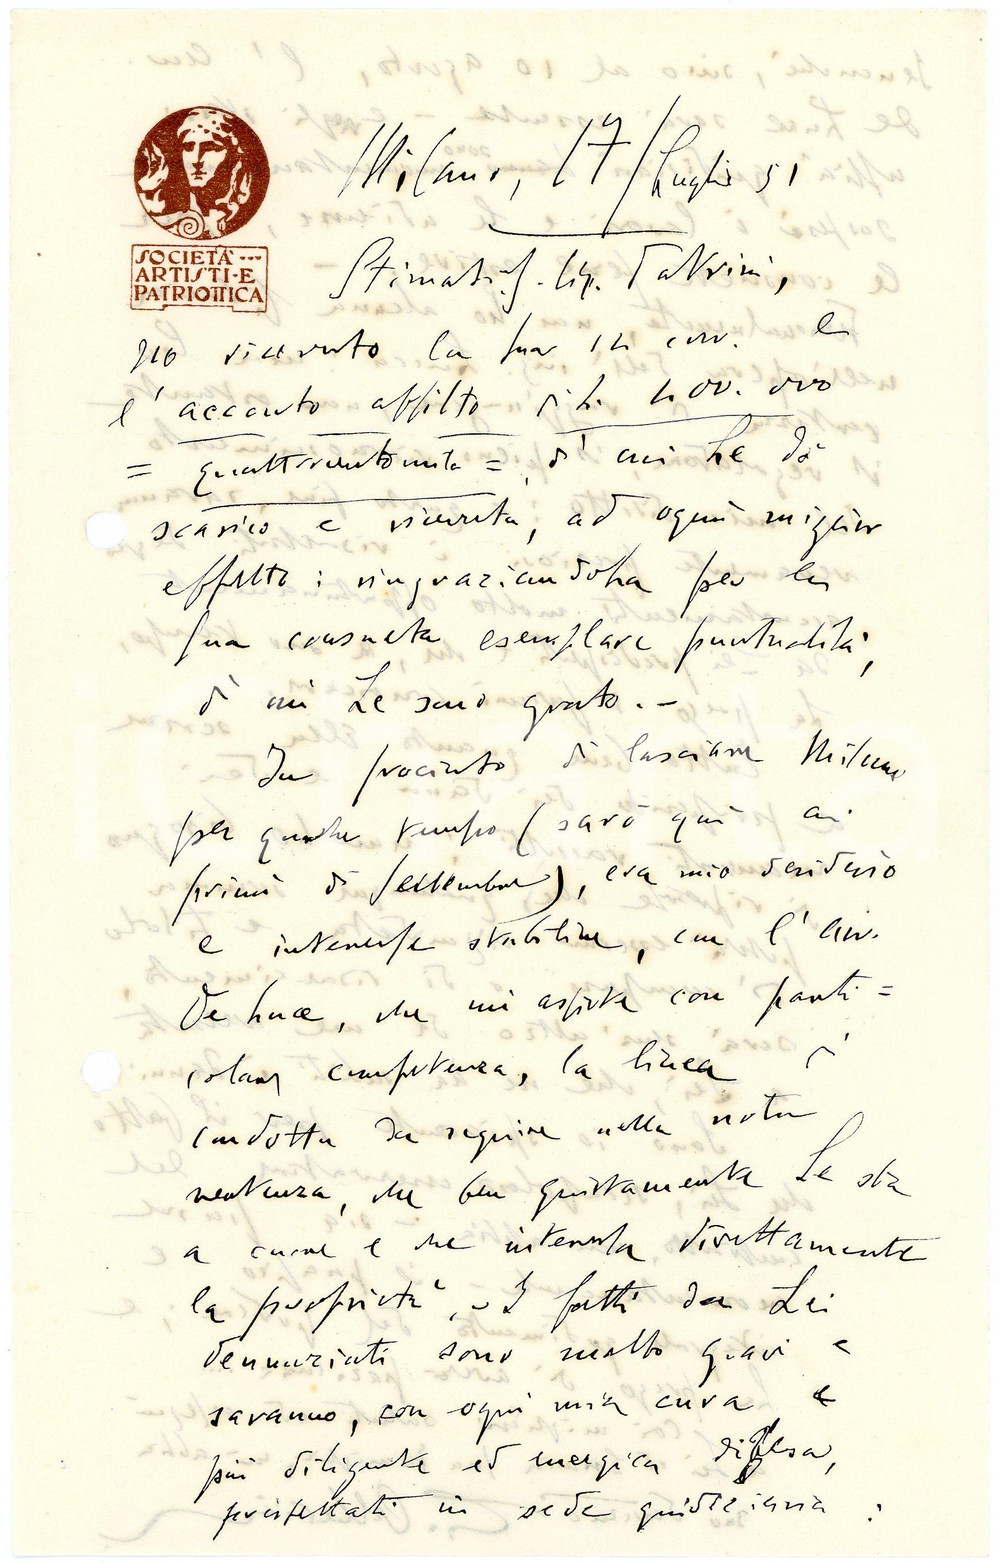 SOCIETÀ
ARTISTI·E
PATRIOTTICA
Milano, 17/Luglio 51
Stimatis. Sig. Tavrini,
Ho ricevuto la sua in corr. e
l'acconto affitto di L.
= quattrocentomila =, di cui Le dò
scarico e ricevuta, ad ogni miglior
effetto: ringraziandola per la
sua consueta esemplare puntualità,
di cui Le sono grato. –
In procinto di lasciare Milano
per qualche tempo (sarò qui ai
primi di settembre), era mio desiderio
e interesse stabilire, con l'Avv.
De Luca, che mi assiste con parti=
colare competenza, la linea di
condotta da seguire nella nota
vertenza, che ben giustamente Le sta
a cuore e che interessa direttamente
la proprietà. – I fatti da Lei
denunziati sono molto gravi e
saranno, con ogni mia cura e
più diligente ed energica difesa,
prospettati in sede giudiziaria: